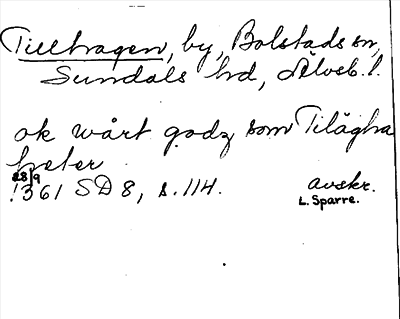 Tillhagen, by, Bolstads sn,
Sundals hd, Älvsb. l.
ok wårt godz som Tilägha
heter
28/9
1361 SD 8, s. 114. avskr.
L. Sparre.